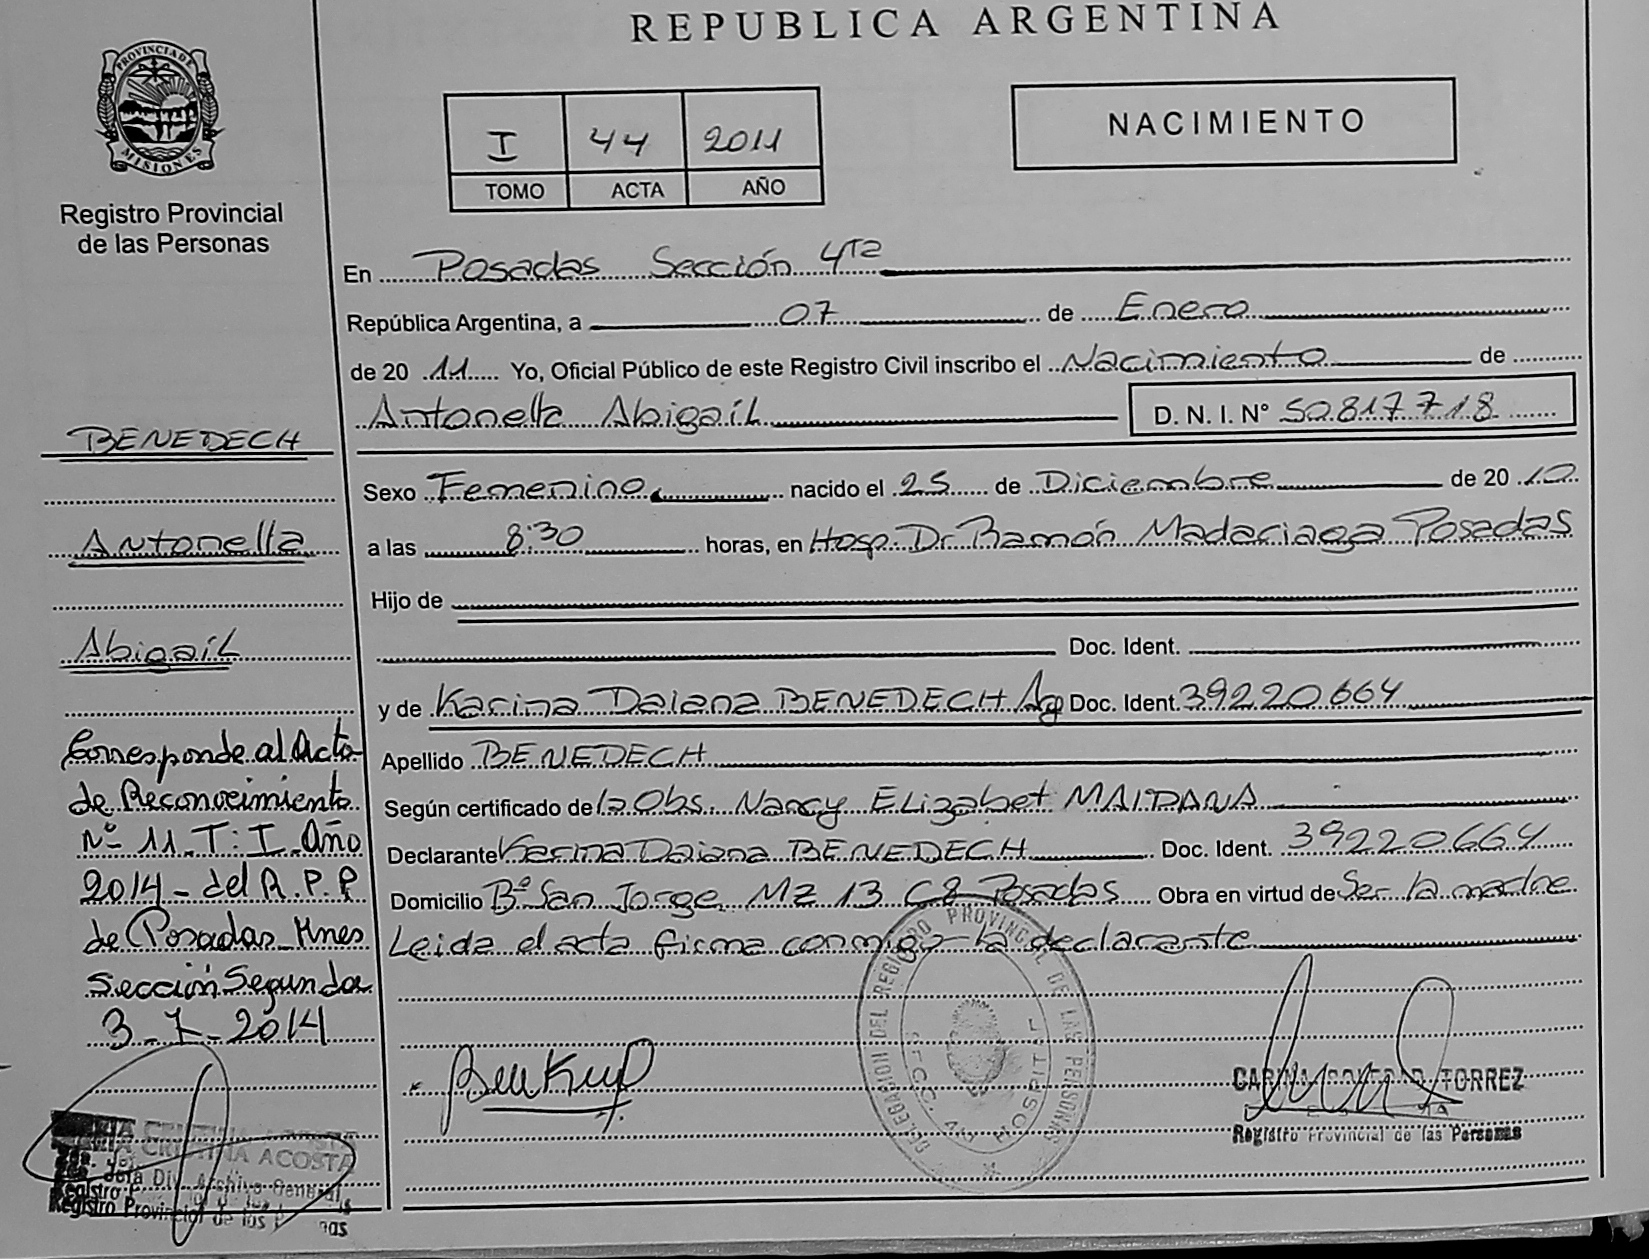 REPUBLICA ARGENTINA
PROVINCIA DE MISIONES
Registro Provincial
de las Personas
I 44 2011
TOMO ACTA AÑO
NACIMIENTO
En Posadas Sección 4ta
República Argentina, a 07 de Enero
de 20 11 Yo, Oficial Público de este Registro Civil inscribo el Nacimiento de
Antonella Abigaíl D. N. I. N° 50.817.718
Sexo Femenino nacido el 25 de Diciembre de 20 10
a las 8:30 horas, en Hosp. Dr Ramón Madariaga Posadas
Hijo de
Doc. Ident.
y de Karina Daiana BENEDECH Arg Doc. Ident. 39220664
Apellido BENEDECH
Según certificado de la Obs. Nancy Elizabet MAIDANA
Declarante Karina Daiana BENEDECH Doc. Ident. 39220664
Domicilio Bº San Jorge Mz 13 C8 Posadas Obra en virtud de Ser la madre
Leida el acta firma conmigo la declarante
BENEDECH
Antonella
Abigaíl
Corresponde al Acta
de Reconocimiento
Nº 11 T: I Año
2014 - del R.P.P
de Posadas Mnes
Sección Segunda
3-7-2014
CRISTINA ACOSTA
Div. Archivo General
Registro Provincial de las
DELEGACION DEL REGISTRO PROVINCIAL DE LAS PERSONAS
SECC. 4ta HOSPITAL
TORREZ
Registro Provincial de las Personas